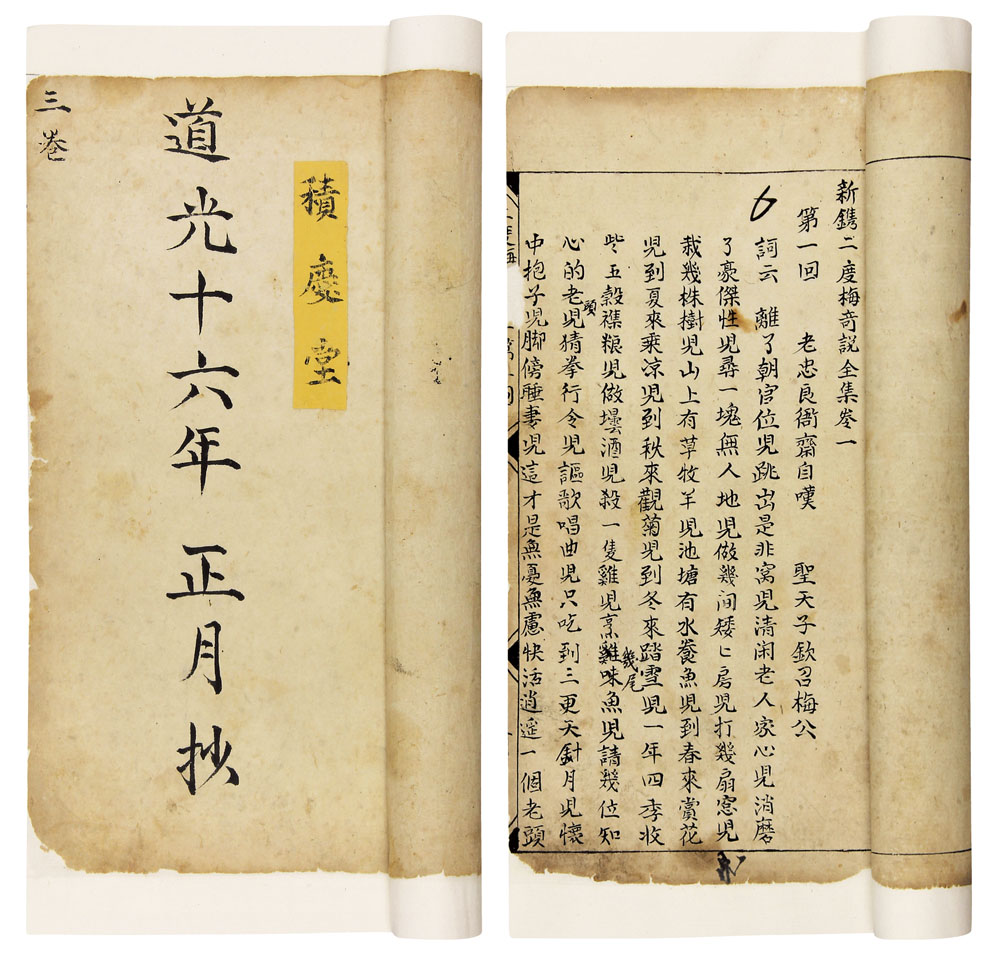 三卷
道光十六年正月抄
積慶堂
新鐫二度梅奇説全集卷一
第一回 老忠良衙齋自嘆 聖天子欽召梅公
詞云 離了朝官位児跳出是非窩児清闲老人家心児消磨
了豪傑性児尋一塊無人地児做幾间矮〻房児打幾扇窓児
栽幾株樹児山上有草牧羊児池塘有水養魚児到春來賞花
児到夏來乘凉児到秋來觀菊児到冬來踏雪児一年四季收
些五穀襍粮児做壜酒児殺一隻雞児烹幾尾雞味魚児請幾位知
心的老頭児猜拳行令児謳歌唱曲児只吃到三更天斜月児懷
中抱子児脚傍睡妻児這才是無憂無慮快活逍遥一個老頭